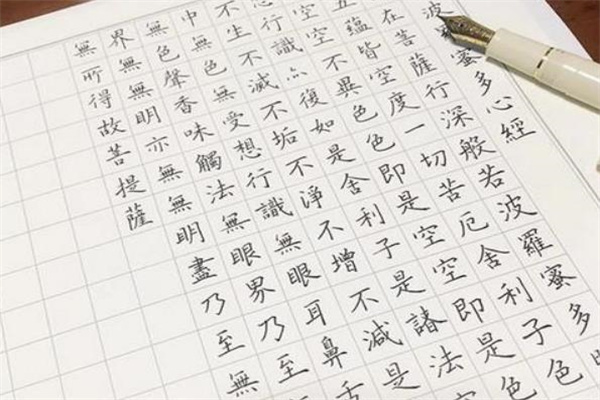 波蜜多心經
在菩薩行深般若波羅蜜多
五蘊皆空度一切苦厄舍利子色
空空不異色色即是空空即是色
行識亦復如是舍利子是諸法
不生不滅不垢不淨不增不減是
中無色無受想行識無眼耳鼻舌
無色聲香味觸法無眼界乃至
界無無明亦無無明盡乃至無
無所得故菩提薩